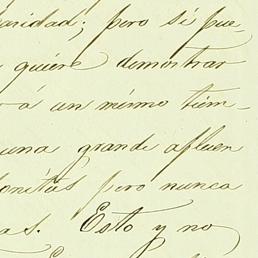 aridad; pero si pue-
quiere demostrar
rá á un mismo tiem-
una grande afluen
bonitas pero nunca
as. Esto y no